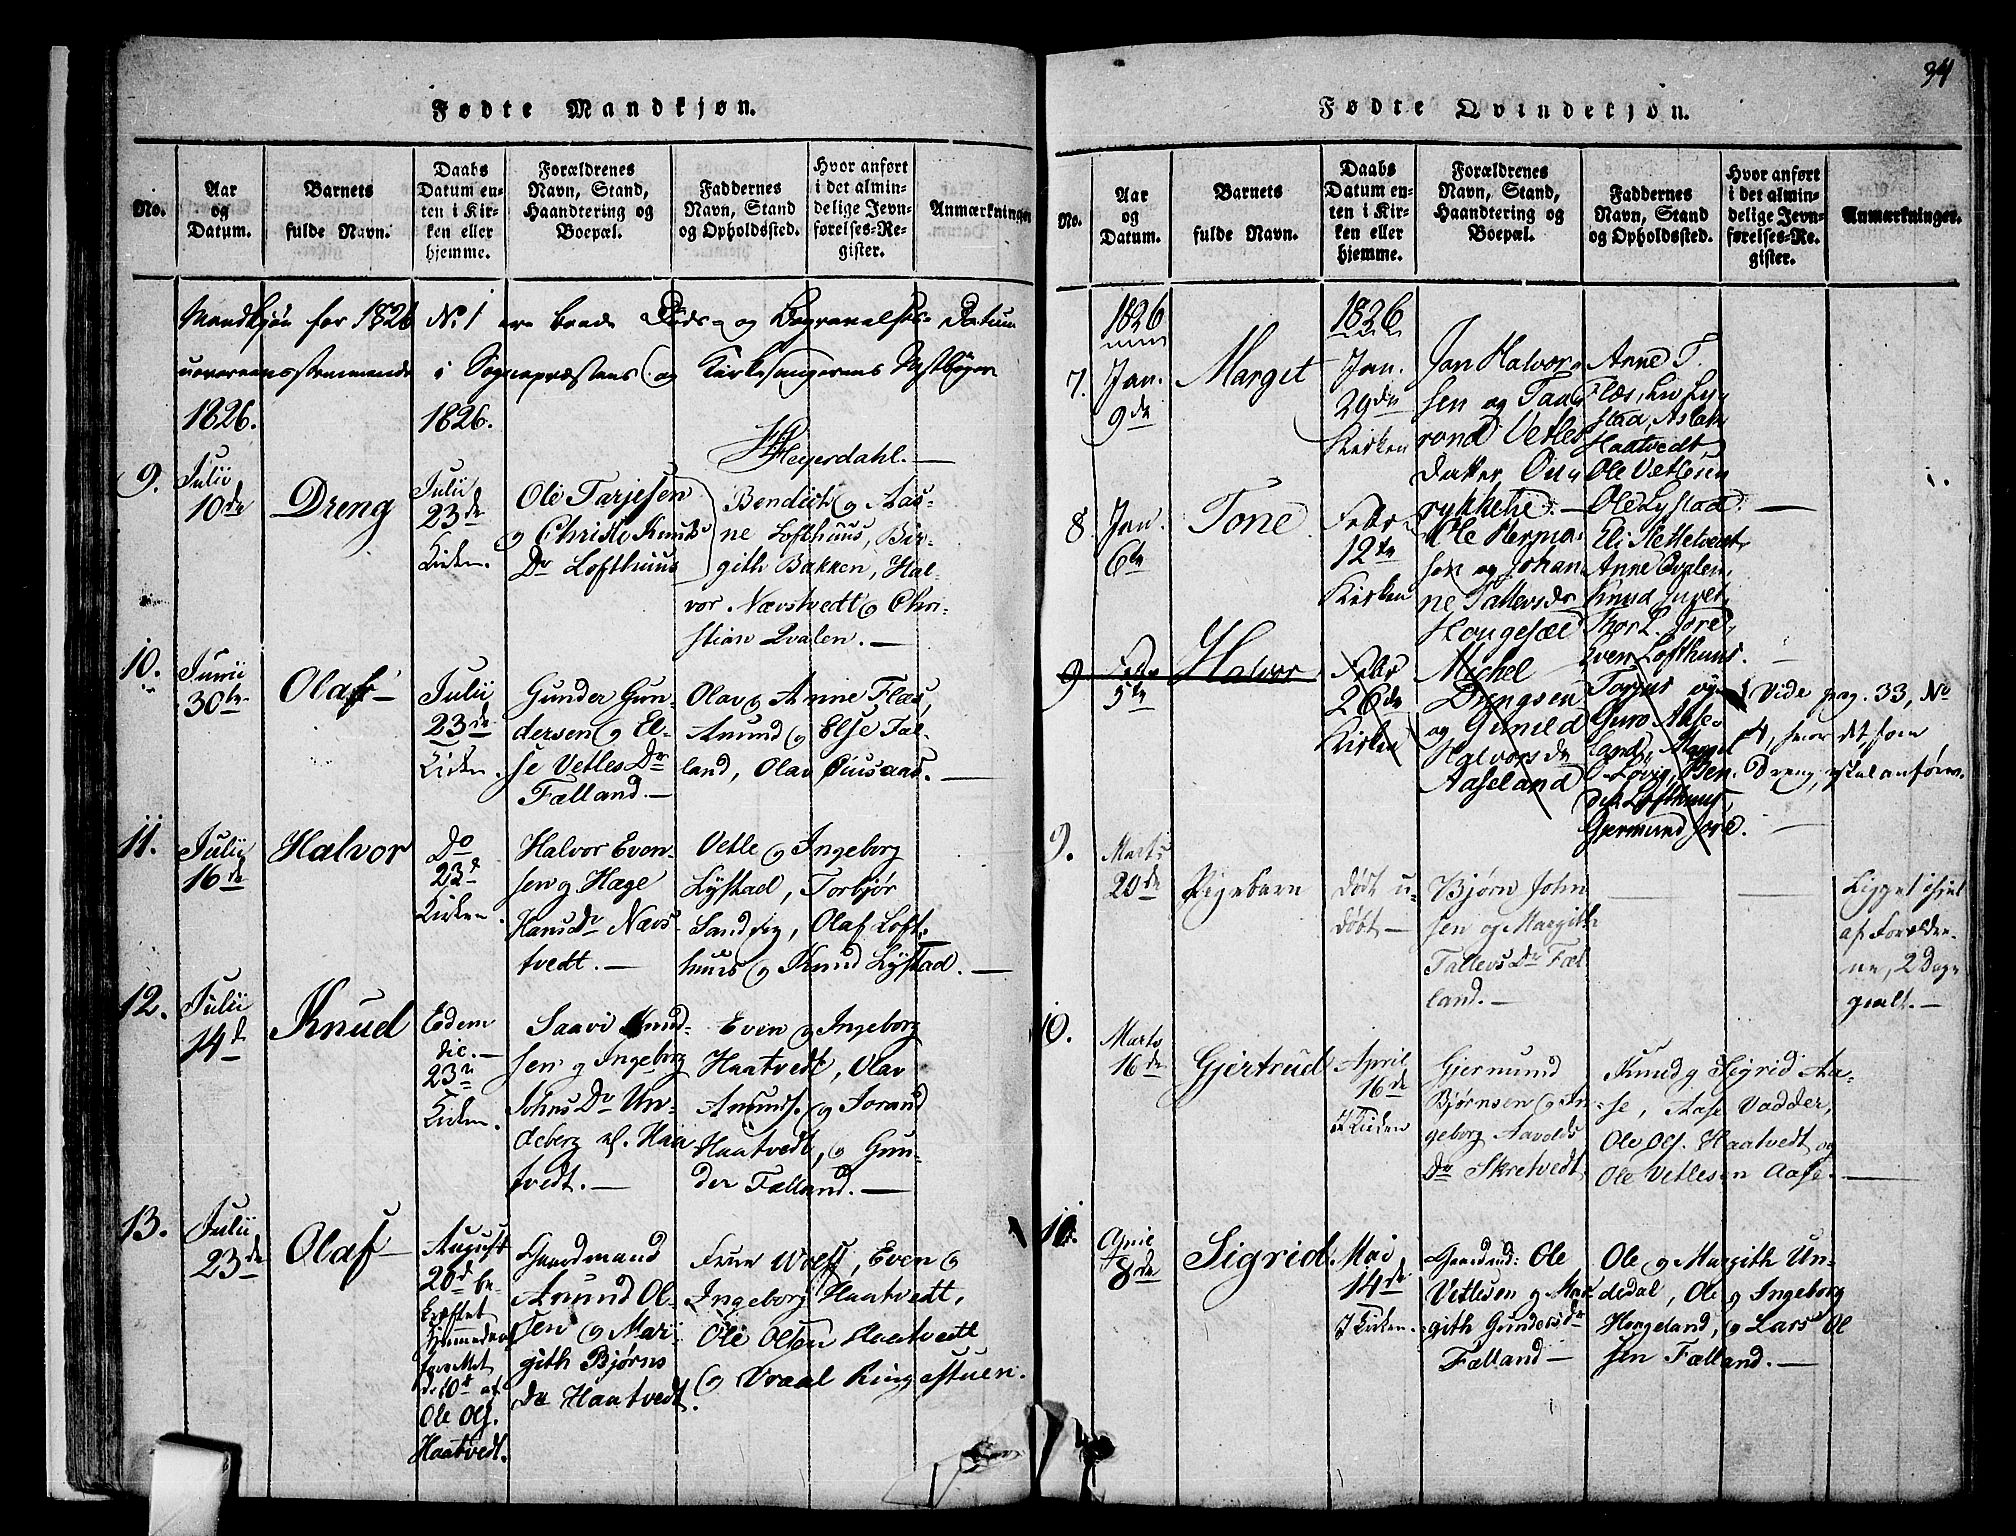 Fødte Mandkjøn.
No.
Aar
og
Datum.
Barnets
fulde Navn.
Daabs
Datum en-
ten i Kir-
ken eller
hjemme.
Forældrenes
Navn, Stand,
Haandtering og
Boepæl.
Faddernes
Navn, Stand
og Opholdssted.
Hvor anført
i det almin-
delige Jevn-
førelses-Re-
gister.
Anmærkninger
Mandkjøn for 1826 No 1 ere baade Døds- og Begravelses- Datum
uovereensstemmende i Sognepræstens og Kirkesangerens
1826.
1826.
Heyerdahl.
9.
Julii
10de
Dreng
Julii
23de
Kirken.
Ole Tarjesen
og Christi Knuds
Dr Lofthuus
Bendict og Aas-
ne Lofthuus, Bir-
gith Bakken, Hal-
vor Nævstvedt og Chri-
stian Qvalen. —
10.
Junii
30te
Olaf
Julii
23de
Kirken.
Gunder Gun-
dersen og El-
se Vetles Dr
Fælland. —
Olav og Anne Flas,
Amund og Else Fæl-
land, Olav . —
11.
Julii
16de
Halvor
Do
23d
Kirken.
Halvor Even-
sen og Hæge
Hans Dr Nævs-
tvedt. —
Vetle og Ingeborg
Lystad, Torbjør
Sandvig, Olaf Loft-
huus og Knud Lystad. —
12.
Julii
14d
Knud
Eodem
die. —
23n
Kirken.
Saavi Knud-
sen og Ingeborg
Johns Dr Un-
deberg vl. Haa
tvedt. —
Even og Ingeborg
Haatvedt, Olav
Amunds. og Jorand
Haatvedt, og Gun-
der Fælland. —
13.
Julii
23de
Olaf
August
20d be-
kræftet
Hjemmedaab
forrettet
d. 10d af
Ole Ols.
Haatvedt.
Gaardmand
Amund Ol-
sen og Mar-
gith Bjørns
Dr Haatvedt.
Frue Wolff, Even og
Ingeborg Haatvedt,
Ole Olsen Haatvedt
og Vraal Ringastuen.
34
Fødte Qvindekjøn.
No.
Aar
og
Datum.
Barnets
fulde Navn.
Daabs
Datum en-
ten i Kir-
ken eller
hjemme.
Forældrenes
Navn, Stand,
Haandtering og
Boepæl.
Faddernes
Navn, Stand
og Opholdssted.
Hvor anført
i det almin-
delige Jevn-
førelses-Re-
gister.
Anmærkninger.
1826
1826
7.
Jan.
9de
Marget
Jan.
29de
Kirken
Jan Halvor-
sen og Taa-
rond Vetles
Datter
rykkelie. —
Anne T.
Flæs, Liv Ly-
stad, Aslak
Haatvedt,
Ole Vetlesen
Ole Lystad. —
8
Jan.
6te
Tone
Febr.
12te
Kirken
Ole Herma-
sen og Johan
ne Tallevs Dr
Haugesæd
Eli Nettetvedt
Anne Qvalen,
Knud Juvet,
Thor L. Jore,
Even Lofthuus.
9
Febr
5te
Halvor
Febr
26de
Kirken
Michel
Dyngsen
og Gunild
Halvors Dr
Aaseland
Torjus og
Guro Aase-
land, Marget
Løvig, Ben-
dik Lofthuus,
Gjermund Jore.
Vide pag. 33, No
4, hvor det, som
Dreng, skal anføres.
9.
Marts
20de
Pigebarn
Død u-
døbt —
Bjørn John
sen og Margith
Tallevs Dr Fæl-
land. —
Ligget ihjel
af Forældre-
ne, 2 Dage
gmlt. —
10.
Marts
16de
Gjertrud
April
16de
I Kirken
Gjermund
Bjørnsen og In-
geborg Aavolds
Dr Skretvedt
Knud og Sigrid Aa-
se, Aase Vadder,
Ole Ols. Haatvedt og
Ole Vetlesen Aase. —
11.
April
8de
Sigrid
Mai
14de
I Kirken.
Gaardmd: Ole
Vetlesen og Mar
gith Gunders Dr
Fælland —
Ole og Margith Un-
dedal, Ole og Ingeborg
Hougeland, og Lars Ol
sen Fælland. —